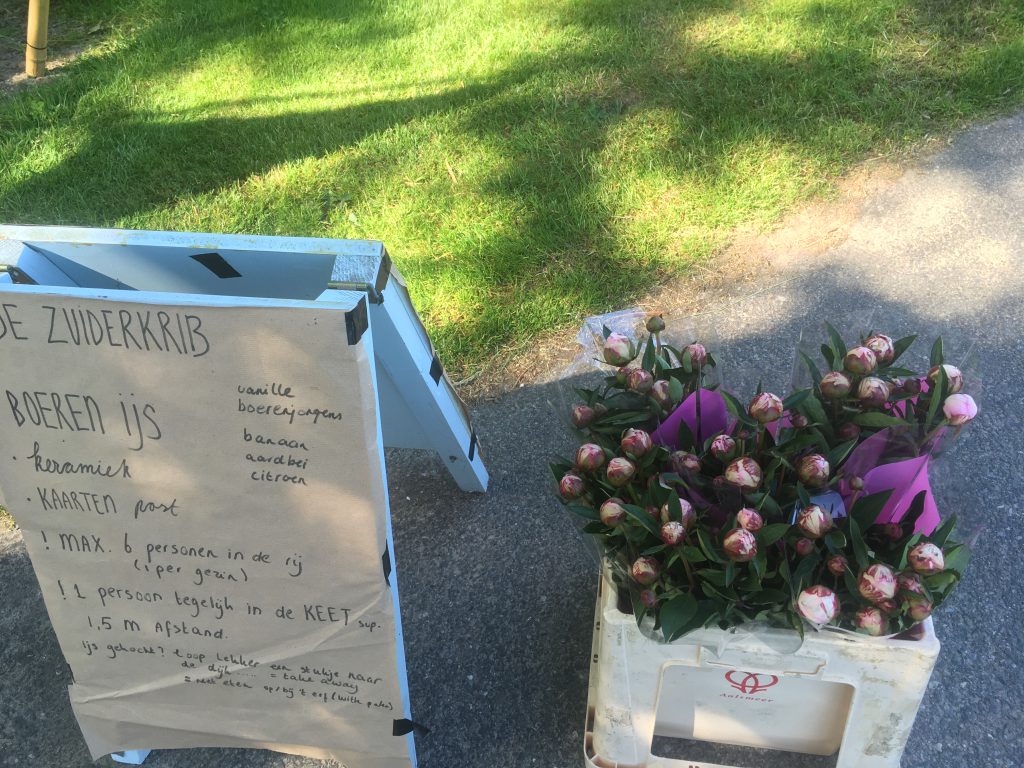 DE ZUIDERKRIB
BOEREN ijs
vanille
boerenjongens
banaan
aardbei
citroen
· keramiek
· KAARTEN post
! MAX. 6 personen in de rij
(1 per gezin)
! 1 persoon tegelijk in de KEET svp.
1,5 m Afstand.
ijs gekocht? loop lekker een stukje naar
de dijk ..... = take away
= niet eten op/bij 't erf (witte palen)
Aalsmeer